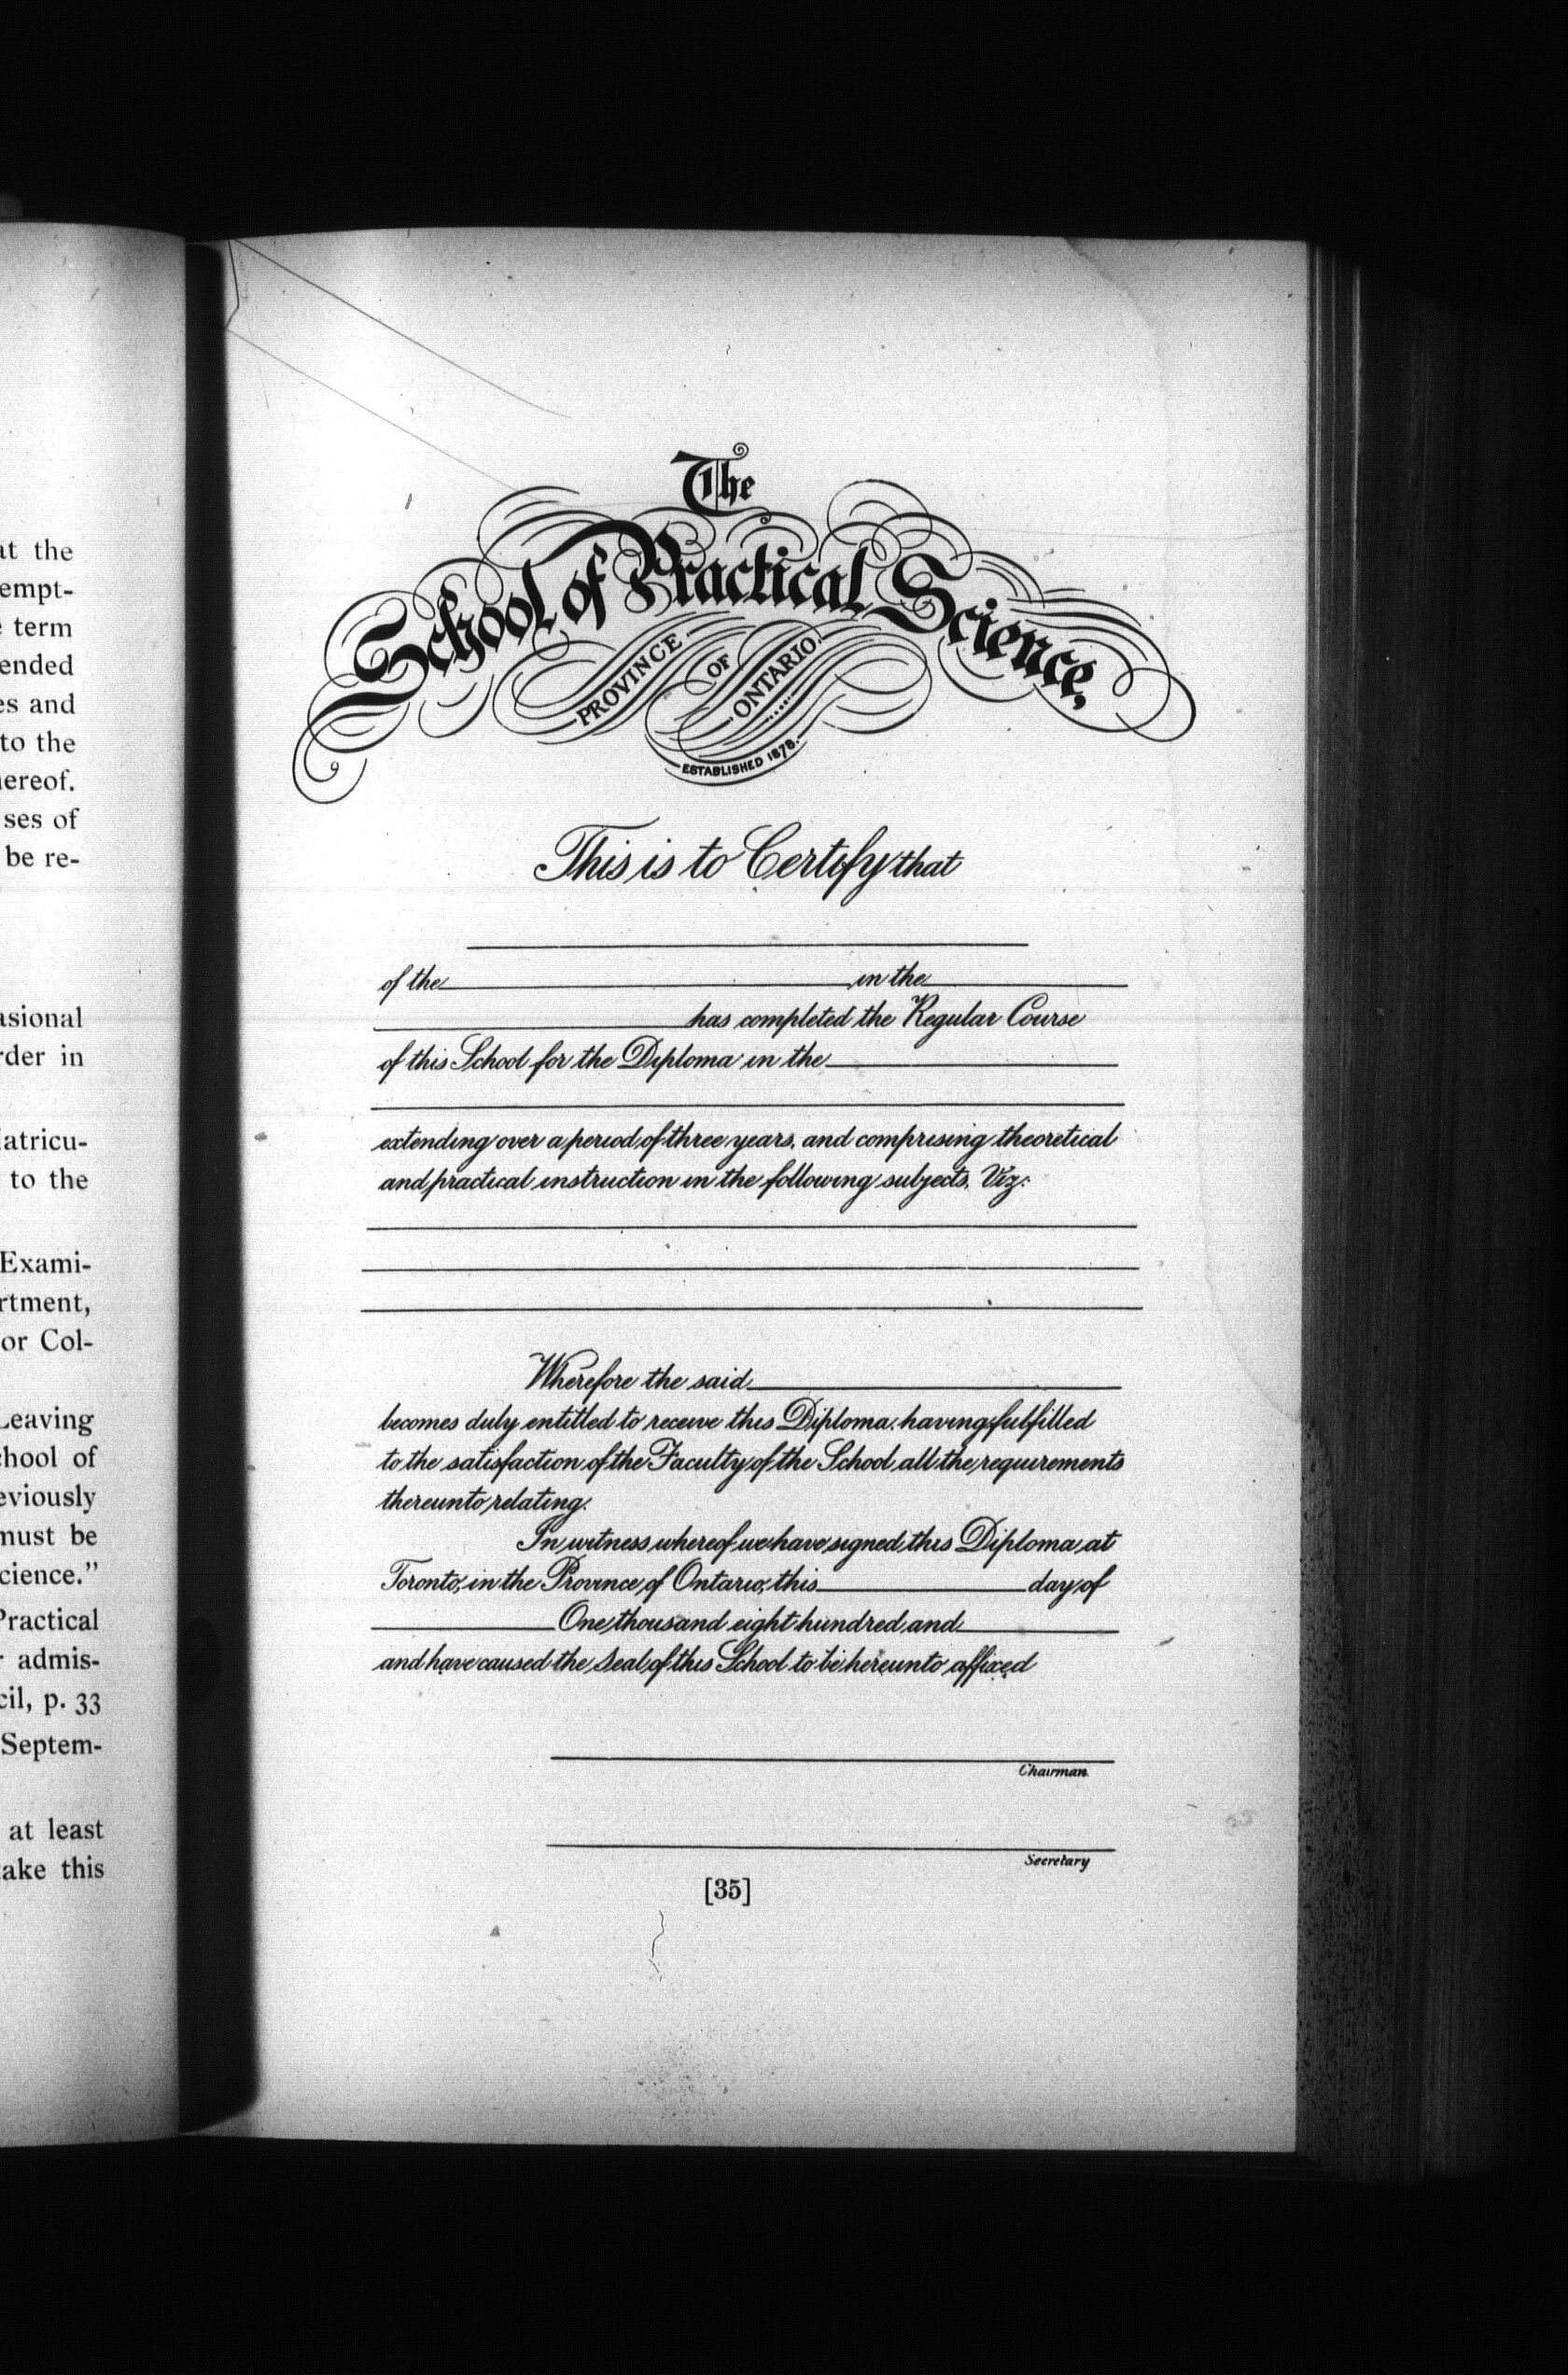 at the
empt-
term
ended
es and
to the
hereof.
ses of
be re-
asional
rder in
atricu-
to the
Exami-
rtment,
or Col-
Leaving
chool of
eviously
must be
cience.”
Practical
admis-
cil, p. 33
Septem-
at least
take this
The
School of Practical Science,
PROVINCE OF ONTARIO
ESTABLISHED 1878.
This is to Certify that
of the in the
has completed the Regular Course
of this School for the Diploma in the
extending over a period of three years, and comprising theoretical
and practical instruction in the following subjects, Viz:
Wherefore the said
becomes duly entitled to receive this Diploma, having fulfilled
to the satisfaction of the Faculty of the School, all the requirements
thereunto relating.
In witness whereof we have signed this Diploma at
Toronto, in the Province of Ontario, this day of
One thousand eight hundred and
and have caused the Seal of this School to be hereunto affixed
Chairman
Secretary
[35]